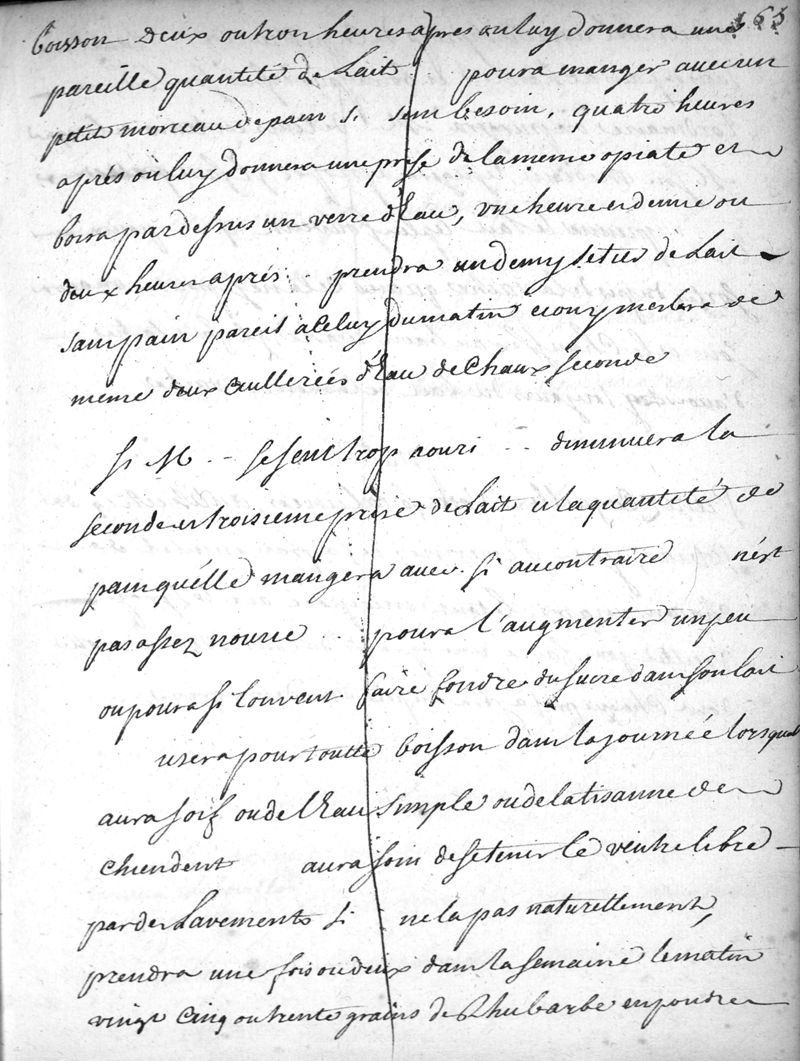 165
boisson deux ou trois heures apres on luy donnera une
pareille quantité de Lait poura manger avec un
petit morceau de pain si sent besoin, quatre heures
aprés on luy donnera une prise de la meme opiate et
boira par dessus un verre d'Eau, une heure et demie ou
deux heures aprés .. prendra un demy setier de Lait
sans pain pareil a celuy du matin et on y meslera de
meme deux cuillereés d'Eau de Chaux seconde
si M .. se sent trop nouri .. diminuera la
seconde et troisieme prise de Lait et la quantité de
pain qu'élle mangera avec si au contraire n'ést
pas assez nourie .. poura l'augmenter un peu
ou poura si l'on veut faire fondre du sucre dans son lait
usera pour toutte boisson dans la journeé lorsqu'al
aura soif ou de l'Eau simple ou de la tisanne de
chiendent aura soin de se tenir le ventre libre
par des Lavements si ne la pas naturellement,
prendra une fois ou deux dans la semaine le matin
vingt cinq ou trente grains de Rhubarbe en poudre